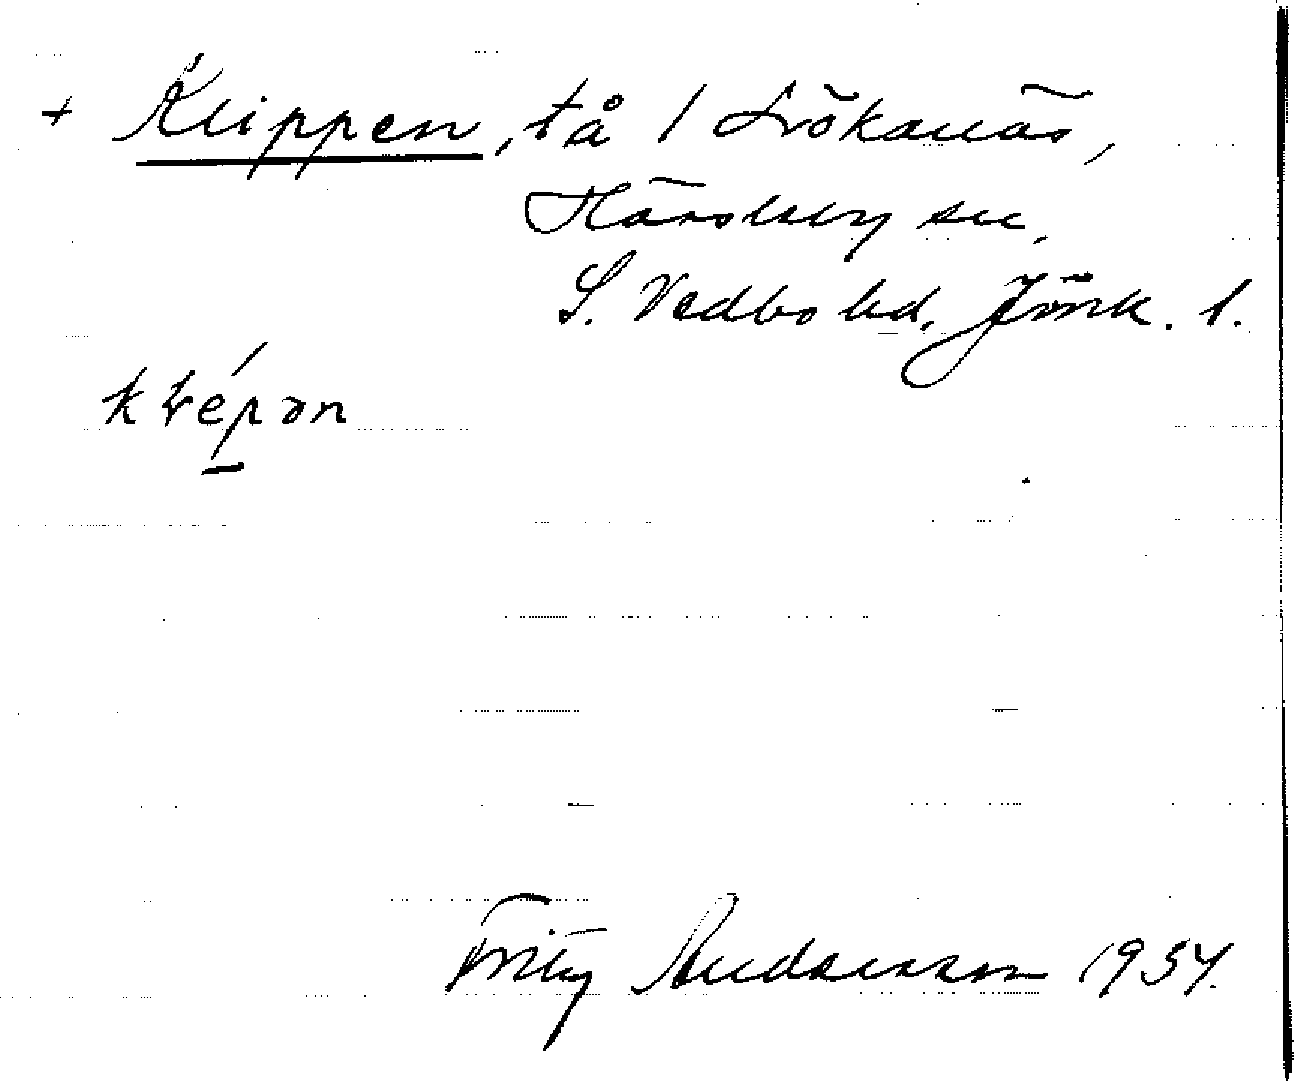 + Klippen, tå / Lövökanäs,
Häradsberg sn,
S. Vedbo hd, Jönk. l.
klépən
Fritz Andersson 1934.